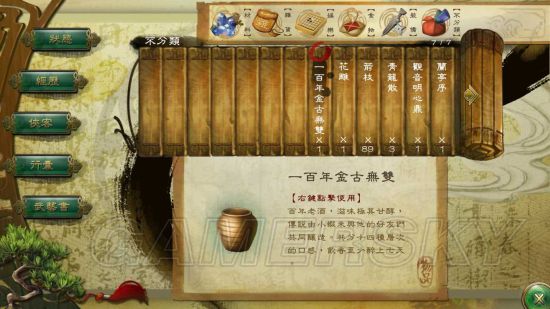 狀態
經歷
俠客
行囊
武藝書
不分類
材料
雜貨
採樂
食物
裝備
不分類
1/1
一百年金古無雙
×
1
花雕
×
1
箭枝
×
89
青龍散
×
3
觀音明心鼎
×
1
蘭亭序
×
1
一百年金古無雙
【右鍵點擊使用】
百年老酒，滋味極其甘醇，
傳說由小蝦米與他的好友們
共同釀造。共分十四種層次
的口感，飲者至少醉上七天
物品
GAMERSKY